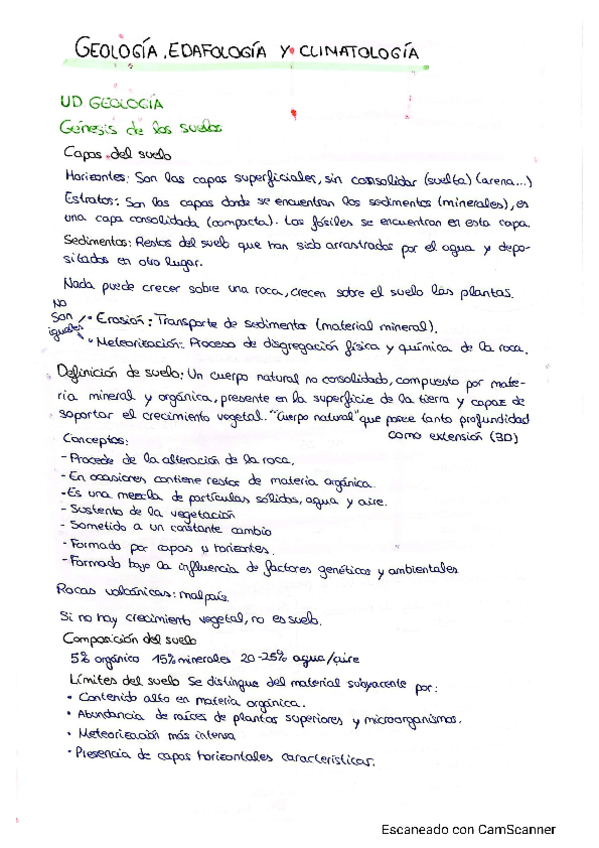 GEOLOGÍA, EDAFOLOGÍA Y CLIMATOLOGÍA
UD GEOLOGÍA
Génesis de los suelos
Capas del suelo
Horizontes: Son las capas superficiales, sin consolidar (suelta) (arena...)
Estratos: Son las capas donde se encuentran los sedimentos (minerales), es
una capa consolidada (compacta). Los fósiles se encuentran en esta capa.
Sedimentos: Restos del suelo que han sido arrastrados por el agua y depo-
sitados en otro lugar.
Nada puede crecer sobre una roca, crecen sobre el suelo las plantas.
NO
Son
iguales
• Erosión: Transporte de sedimentos (material mineral).
• Meteorización: Proceso de disgregación física y química de la roca.
Definición de suelo: Un cuerpo natural no consolidado, compuesto por mate-
ria mineral y orgánica, presente en la superficie de la tierra y capaz de
soportar el crecimiento vegetal. "Cuerpo natural" que posee tanto profundidad
como extensión (3D)
Conceptos:
- Procede de la alteración de la roca.
- En ocasiones contiene restos de materia orgánica.
- Es una mezcla de partículas sólidas, agua y aire.
- Sustento de la vegetación
- Sometido a un constante cambio
- Formado por capas u horizontes.
- Formado bajo la influencia de factores genéticos y ambientales
Rocas volcánicas: malpaís
Si no hay crecimiento vegetal, no es suelo.
Composición del suelo
5% orgánico 15% minerales 20-25% agua/aire
Límites del suelo Se distingue del material subyacente por:
• Contenido alto en materia orgánica.
• Abundancia de raíces de plantas superiores y microorganismos.
• Meteorización más intensa
• Presencia de capas horizontales características.
Escaneado con CamScanner